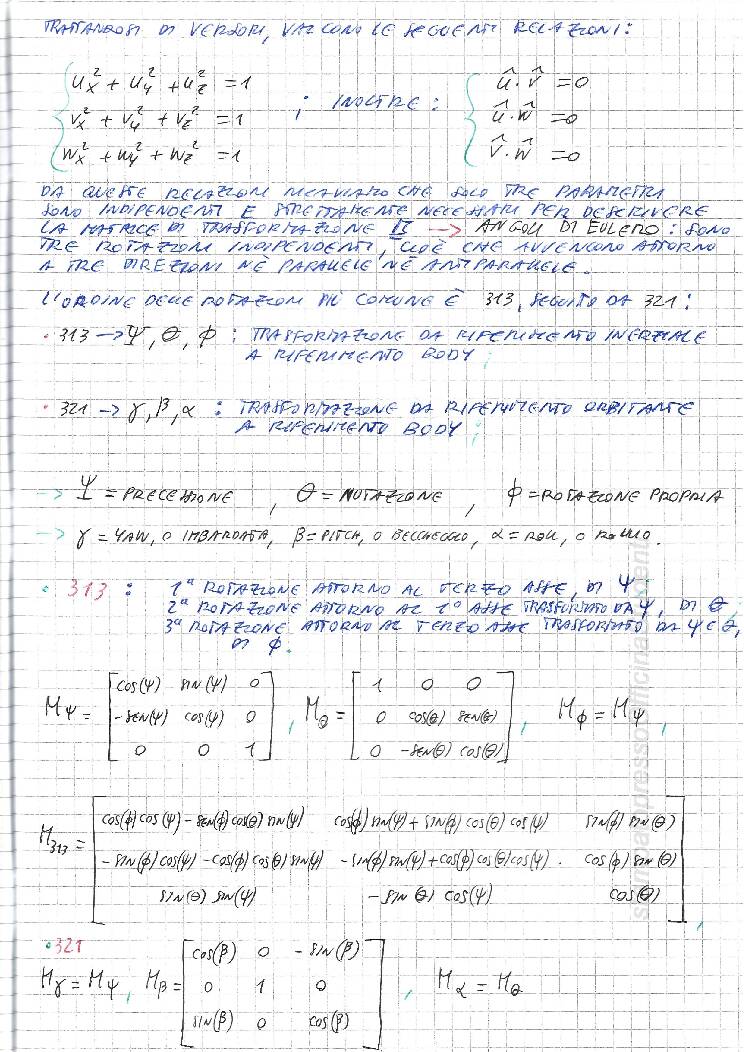 TRATTANDOSI DI VERSORI, VALGONO LE SEGUENTI RELAZIONI:
u_x² + u_y² + u_z² = 1
v_x² + v_y² + v_z² = 1
w_x² + w_y² + w_z² = 1
; INOLTRE:
û·v̂ = 0
û·ŵ = 0
v̂·ŵ = 0
DA QUESTE RELAZIONI RICAVIAMO CHE SOLO TRE PARAMETRI
SONO INDIPENDENTI E STRETTAMENTE NECESSARI PER DESCRIVERE
LA MATRICE DI TRASFORMAZIONE → ANGOLI DI EULERO: SONO
TRE ROTAZIONI INDIPENDENTI, CIOÈ CHE AVVENGONO ATTORNO
A TRE DIREZIONI NÈ PARALLELE NÈ ANTIPARALLELE.
L'ORDINE DELLE ROTAZIONI PIÙ COMUNE È 313, SEGUITO DA 321:
· 313 → Ψ, θ, φ : TRASFORMAZIONE DA RIFERIMENTO INERZIALE
A RIFERIMENTO BODY;
· 321 → γ, β, α : TRASFORMAZIONE DA RIFERIMENTO ORBITANTE
A RIFERIMENTO BODY;
→ Ψ = PRECESSIONE , θ = NUTAZIONE , φ = ROTAZIONE PROPRIA
→ γ = YAW, O IMBARDATA, β = PITCH, O BECCHEGGIO, α = ROLL, O ROLLIO.
· 313 : 1ª ROTAZIONE ATTORNO AL TERZO ASSE, DI Ψ;
2ª ROTAZIONE ATTORNO AL 1º ASSE TRASFORMATO DA Ψ, DI θ;
3ª ROTAZIONE ATTORNO AL TERZO ASSE TRASFORMATO DA Ψ E θ,
DI φ.
M_Ψ = [cos(Ψ) sin(Ψ) 0
-sen(Ψ) cos(Ψ) 0
0 0 1] ,
M_θ = [1 0 0
0 cos(θ) sen(θ)
0 -sen(θ) cos(θ)] ,
M_φ = M_Ψ ,
M_313 = [cos(φ)cos(Ψ) - sen(φ)cos(θ)sin(Ψ) cos(φ)sin(Ψ) + sin(φ)cos(θ)cos(Ψ) sin(φ)sin(θ)
-sin(φ)cos(Ψ) - cos(φ)cos(θ)sin(Ψ) -sin(φ)sin(Ψ) + cos(φ)cos(θ)cos(Ψ) . cos(φ)sin(θ)
sin(θ) sin(Ψ) -sin(θ) cos(Ψ) cos(θ)] ,
· 321
M_γ = M_Ψ , M_β = [cos(β) 0 -sin(β)
0 1 0
sin(β) 0 cos(β)] , M_α = M_θ